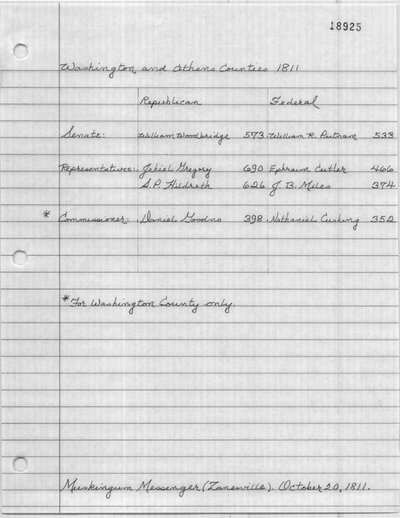 18925
Washington and Athens Counties 1811
Republican Federal
Senate: William Woodbridge 573 William R. Putnam 533
Representatives: Jehiel Gregory 690 Ephraim Cutler 466
S.P. Hildreth 626 J. B. Miles 374
* Commissioner: Daniel Goodno 398 Nathaniel Cushing 352
* For Washington County only.
Muskingum Messenger (Zanesville). October 20, 1811.